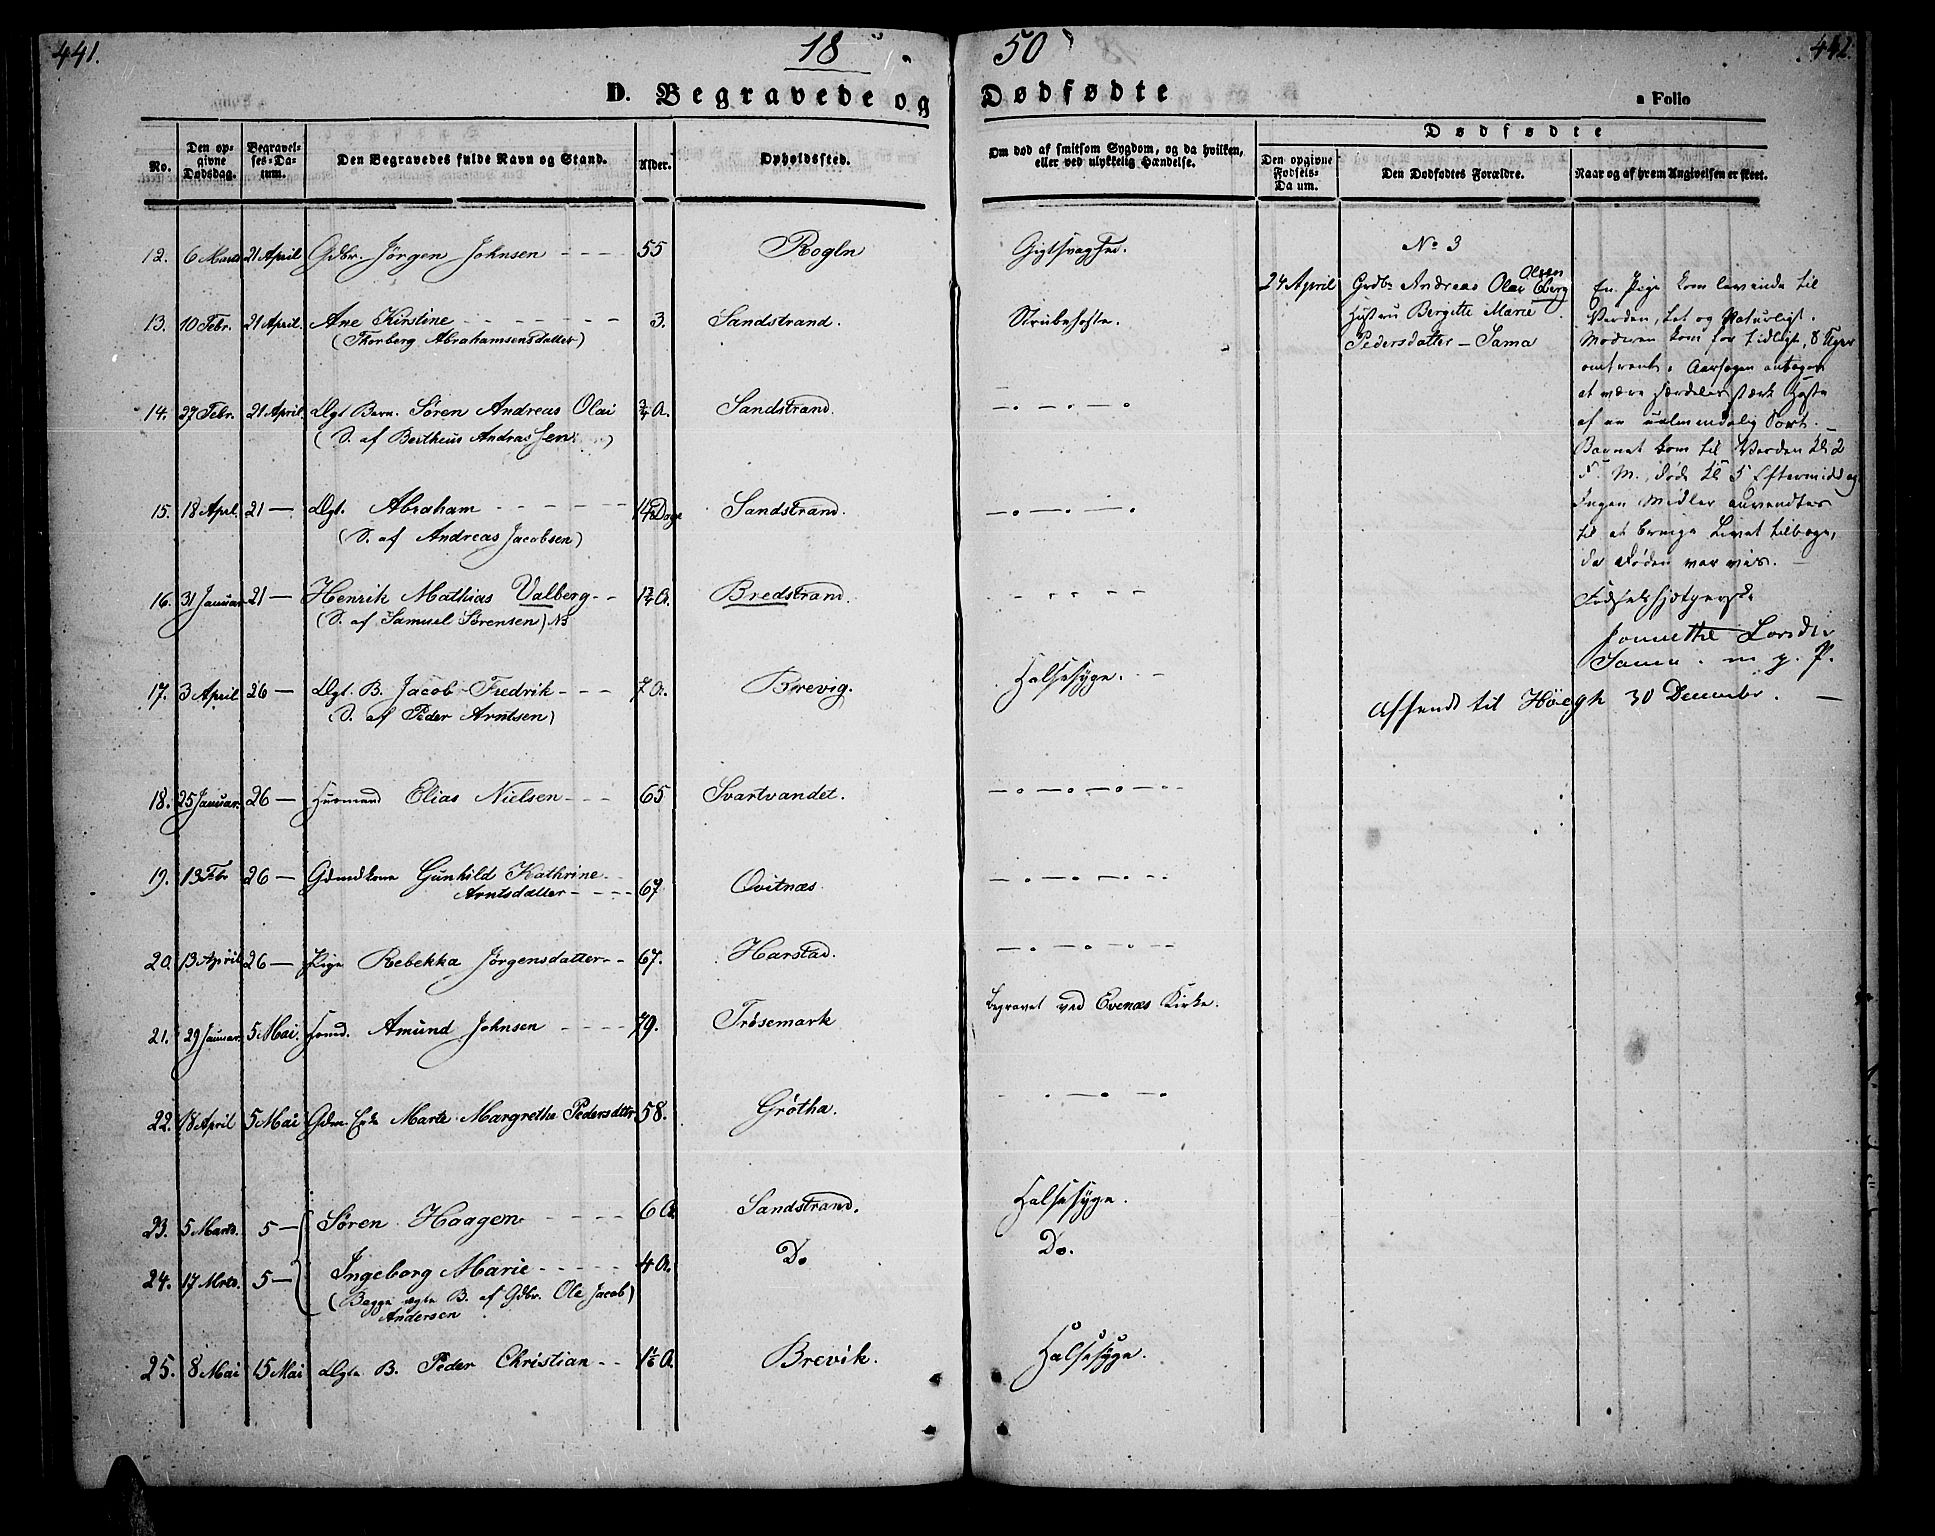 441.
18
50
442.
D. Begravede og Dødfødte
a Folio
No.
Den opgivne Dødsdag.
Begravelses-Datum.
Den Begravedes fulde Navn og Stand.
Alder.
Opholdssted.
Om død af smitsom Sygdom, og da hvilken,
eller ved ulykkelig Hændelse.
Dødfødte
Den opgivne Fødsels-Datum.
Den Dødfødtes Forældre.
Naar og af hvem Angivelsen er skeet.
12. 6 Marts 21 April Gdbr. Jörgen Johnsen 55 Rogln
13. 10 Febr. 21 April. Ane Kirstine 3. Sandstrand. Strubehoste.
(Thorberg Abrahamsensdatter)
14. 27 Febr. 21 April. Ægt Barn. Sören Andreas Olai ¾ A. Sandstrand.
(S. af Bertheus Andrassen)
15. 18 April. 21 — Ægt. Abraham 14 Dage Sandstrand.
(S. af Andreas Jacobsen)
16. 31 Januar 21 — Henrik Mathias Valberg A. Bredstrand.
(S. af Samuel Sörensen)
17. 3 April 26 — Ægt. B. Jacob Fredrik 7 A. Brevig. Halsesyge.
(S. af Peder Arntsen)
18. 25 Januar. 26 — Huusmand Elias Nielsen 65 Svartvandet.
19. 13 Febr 26 — Gdmdkone Gunhild Kathrine
Arntsdatter 67 Qvitnæs
20. 13 April 26 — Pige Rebekka Jörgensdatter 67. Harstad.
21. 29 Januar. 5 Mai. Amund Johnsen 79. Trösemark
Begravet ved Evenæs Kirke.
22. 18 April 5 Mai Gdm. Enke Marte Margrethe Pedersdtter 58. Grötha.
23. 5 Marts. 5 — Sören Haagen 6 A Sandstrand. Halsesyge.
24. 17 Mrts. 5 — Ingeborg Marie 4 A. Do Do.
(Begge ægte B. af Gdbr. Ole Jacob)
Andersen
25. 8 Mai 15 Mai Ægte B. Peder Christian A. Brevik. Halsesyge.
No 3
Olsen
24 April Grdbr Andreas Olai Eberg
Hustru Bergitte Marie
Pedersdatter — Sama
En Pige kom levende til
Verden, let og Naturligt.
Moderen kom for tidligt, 8 Uger
omtrent. Aarsagen antages
at være særdeles stærk Hoste
af en ualmindelig Sort. —
Barnet kom til Verden Kl. 2
F. M., døde Kl 5 Eftermiddag
Ingen Midler anvendtes
til at bringe Livet tilbage,
da Døden var vis. —
Fødselshjelperske
m. p. P.
Afsendt til Höegh 30 December. —